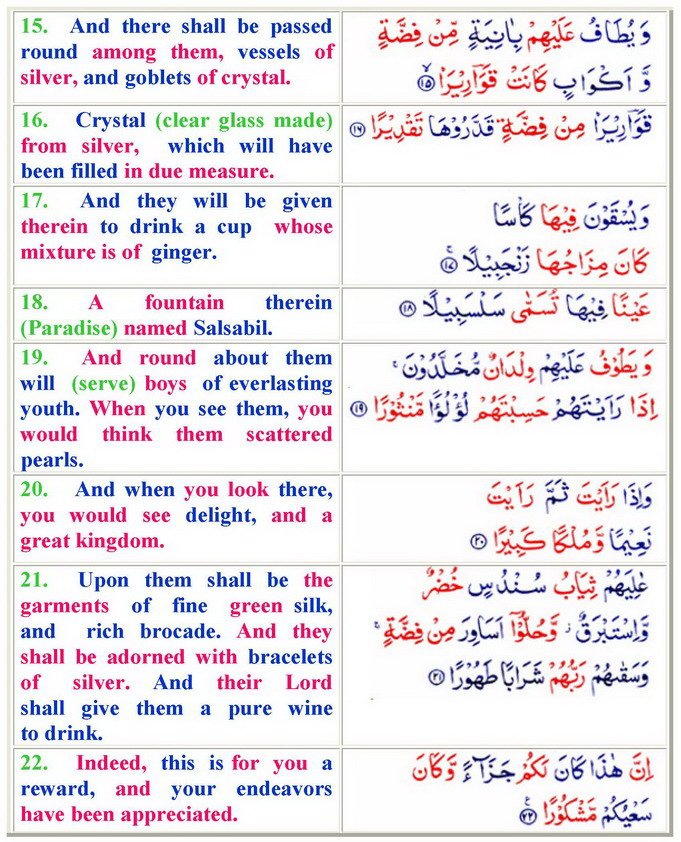 15. And there shall be passed
round among them, vessels of
silver, and goblets of crystal.
وَ يُطَافُ عَلَيْهِمْ بِاٰنِيَةٍ مِّنْ فِضَّةٍ
وَّ اَكْوَابٍ كَانَتْ قَوَارِيْرَا۠ ۙ‏﴿۱۵﴾
16. Crystal (clear glass made)
from silver, which will have
been filled in due measure.
قَوَارِيْرَا۠ مِنْ فِضَّةٍ قَدَّرُوْهَا تَقْدِيْرًا ﴿۱۶﴾
17. And they will be given
therein to drink a cup whose
mixture is of ginger.
وَيُسْقَوْنَ فِيْهَا كَاْسًا
كَانَ مِزَاجُهَا زَنْجَبِيْلًا ۚ ﴿۱۷﴾
18. A fountain therein
(Paradise) named Salsabil.
عَيْنًا فِيْهَا تُسَمّٰى سَلْسَبِيْلًا ﴿۱۸﴾
19. And round about them
will (serve) boys of everlasting
youth. When you see them, you
would think them scattered
pearls.
وَ يَطُوْفُ عَلَيْهِمْ وِلْدَانٌ مُّخَلَّدُوْنَ ۚ
اِذَا رَاَيْتَهُمْ حَسِبْتَهُمْ لُؤْلُؤًا مَّنْثُوْرًا ﴿۱۹﴾
20. And when you look there,
you would see delight, and a
great kingdom.
وَاِذَا رَاَيْتَ ثَمَّ رَاَيْتَ
نَعِيْمًا وَّمُلْكًا كَبِيْرًا ﴿۲۰﴾
21. Upon them shall be the
garments of fine green silk,
and rich brocade. And they
shall be adorned with bracelets
of silver. And their Lord
shall give them a pure wine
to drink.
عٰلِيَهُمْ ثِيَابُ سُنْدُسٍ خُضْرٌ
وَّاِسْتَبْرَقٌ ۡ وَّحُلُّوْۤا اَسَاوِرَ مِنْ فِضَّةٍ ۚ
وَسَقٰهُمْ رَبُّهُمْ شَرَابًا طَهُوْرًا ﴿۲۱﴾
22. Indeed, this is for you a
reward, and your endeavors
have been appreciated.
اِنَّ هٰذَا كَانَ لَكُمْ جَزَآءً وَّكَانَ
سَعْيُكُمْ مَّشْكُوْرًا ۚ ﴿۲۲﴾